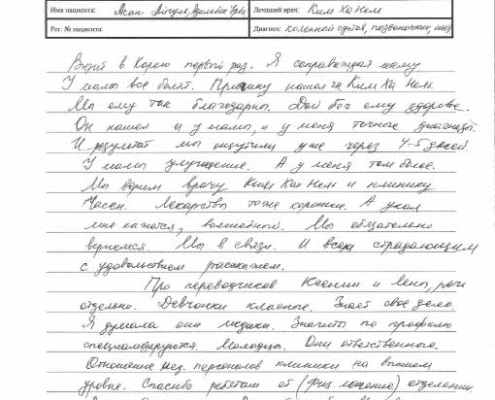 Имя пациента: Асан Айгуля, Лечащий врач: Ким Ха Нем
Рег. № пациента: Диагноз: коленный сустав, позвоночник,
в Корею первый раз. Я сопровождаю маму
У мамы все болит. Причину нашел Ким Ха Нем.
Мы ему так благодарны. Дай бог ему здоровье.
Он нашел и у мамы, и у меня точные диагнозы.
И результат мы ощутили уже через 4-5 дней.
У мамы улучшение. А у меня тем более.
Мы верим врачу Ким Хан Нем и клинику
Часен. Лекарства тоже хорошие. А укол
мне кажется, волшебный. Мы обязательно
вернемся. Мы в связи. И всем страдающим
с удовольствием расскажем.
Про переводчиков Ксении и Лены, речь
отдельно. Девчонки классные. Знает свое дело.
Я думала они медики. Значить по профилю
специализируются. Молодцы. Они ответственные.
Отношение мед. персонала клиники на высшем
уровне. Спасибо ребятам от (физ лечение) отделении.